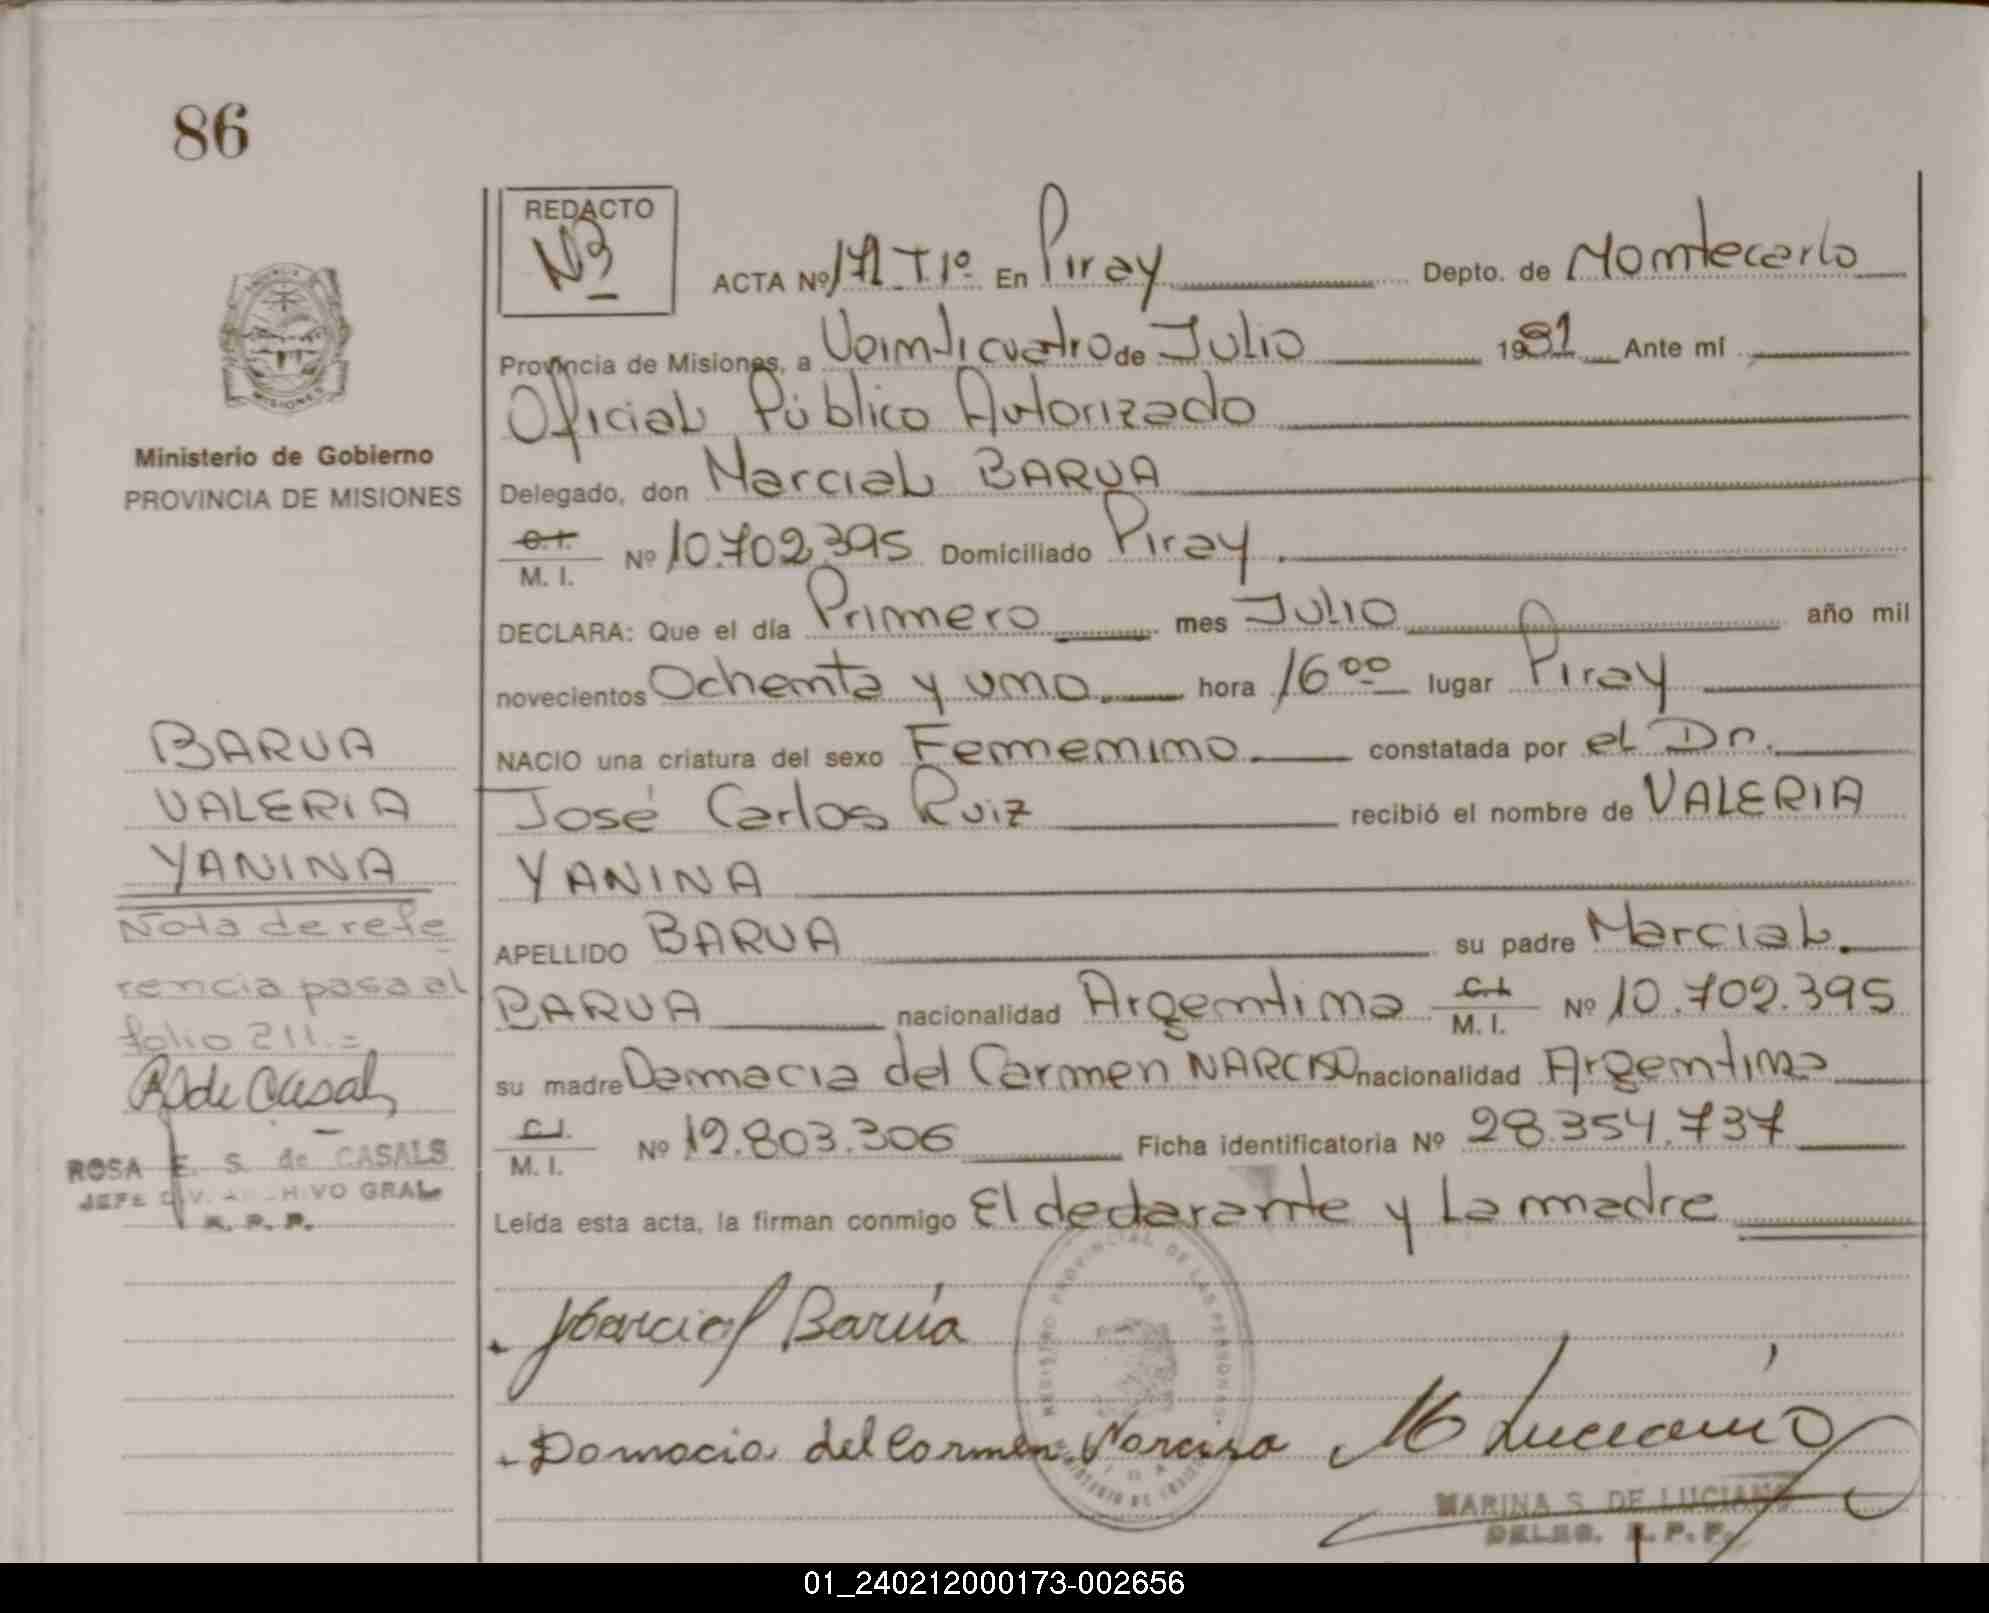 86
REDACTO
Nº
ACTA Nº 171 T 1º En Piray Depto. de Montecarlo
Provincia de Misiones, a Veinticuatro de Julio 1981 Ante mí
Oficial Público Autorizado
Ministerio de Gobierno
PROVINCIA DE MISIONES
Delegado, don Marcial BARUA
C.I.
M. I. Nº 10.702.395 Domiciliado Piray.
DECLARA: Que el día Primero mes Julio año mil
novecientos Ochenta y uno. hora 16 00 lugar Piray
NACIO una criatura del sexo Femenino. constatada por el Dr.
José Carlos Ruiz recibió el nombre de VALERIA
YANINA
APELLIDO BARUA su padre Marcial.
BARUA nacionalidad Argentina C.I. M. I. Nº 10.702.395
su madre Damacia del Carmen NARCISO nacionalidad Argentina
C.I.
M. I. Nº 12.803.306 Ficha identificatoria Nº 28.354.737
Leída esta acta, la firman conmigo El declarante y la madre
BARUA
VALERIA
YANINA
Nota de refe
rencia pasa al
folio 211.=
R de Casals
ROSA E. S. de CASALS
JEFE DIV. ARCHIVO GRAL.
R. P. P.
MISIONES
Marcial Barúa
Damacia del Carmen Narciso
M Luciano
REGISTRO PROVINCIAL DE LAS PERSONAS
MARINA S. DE LUCIANO
DELEG. R. P. P.
01_240212000173-002656